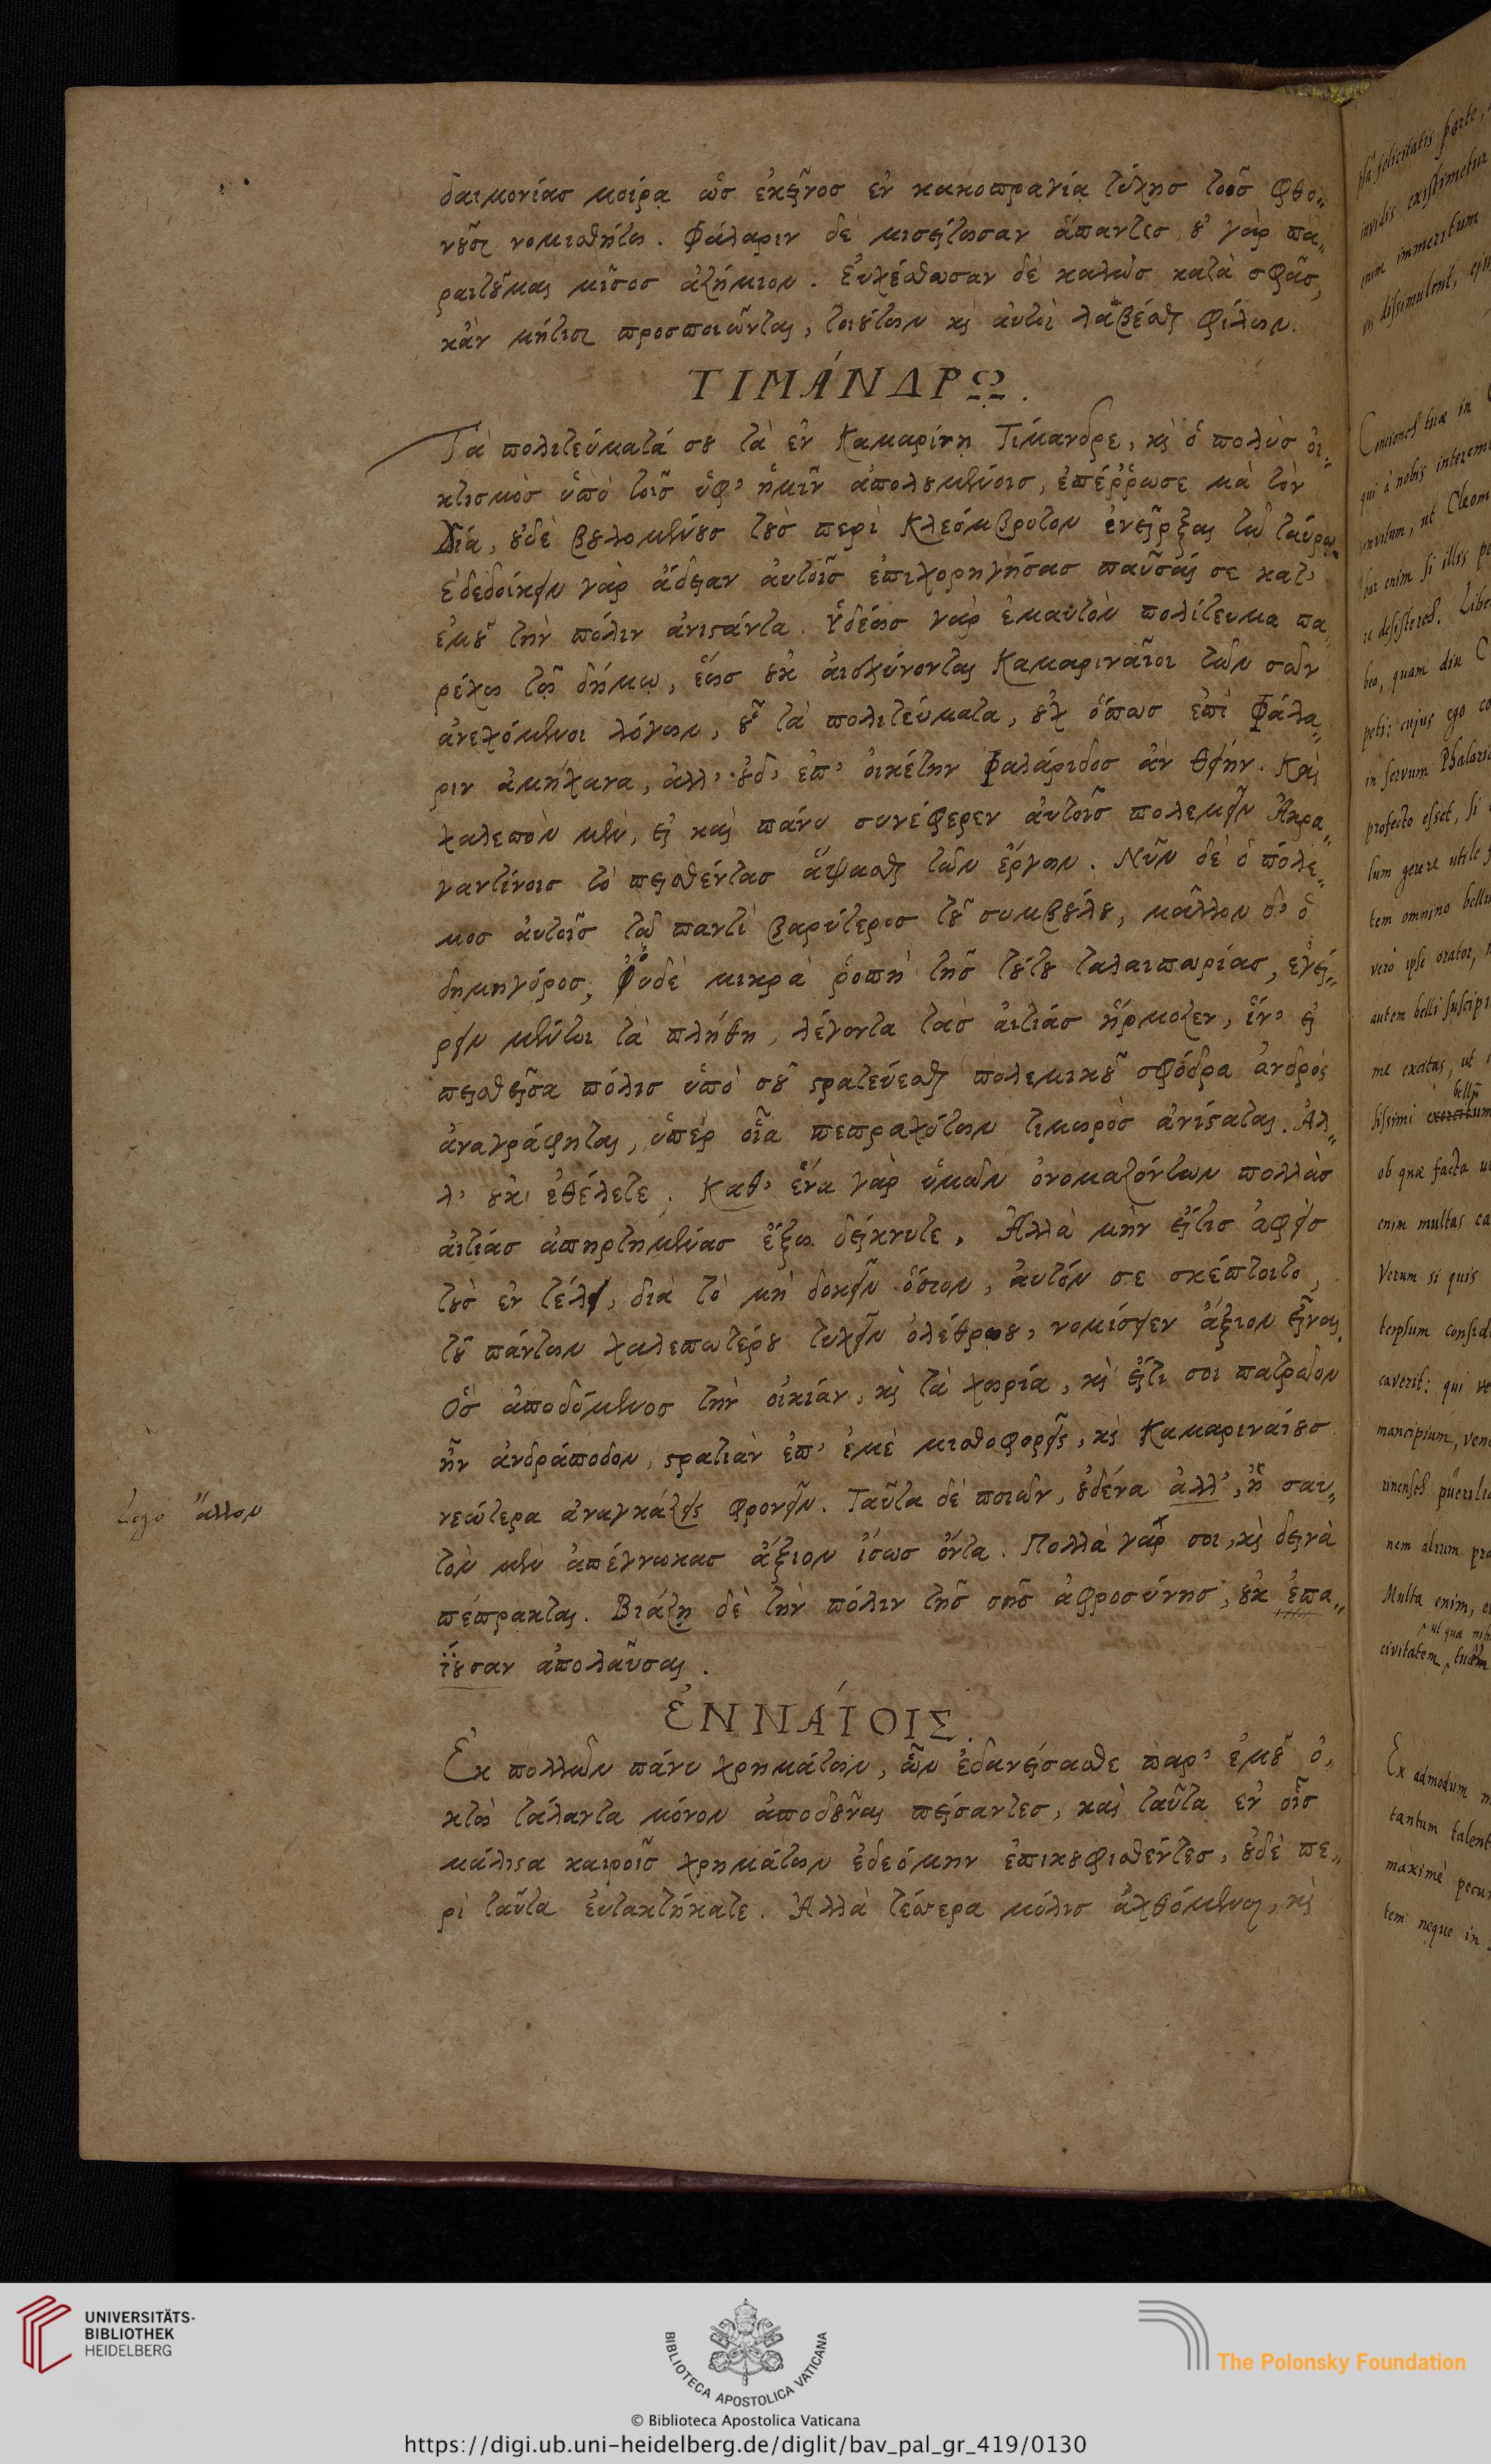 δαιμονίας μοίρᾳ ὡς ἐκεῖνος ἐν κακοπραγίᾳ τύχης τοῖς φθο„
νοῦσι νομισθήτω. Φάλαριν δὲ μισείτωσαν ἅπαντες, οὐ γὰρ πα„
ραιτοῦμαι μῖσος ἀζήμιον. Εὐχέσθωσαν δὲ καλῶς κατὰ σφᾶς,
κἂν μήτισι προσποιῶνται, τοιούτων καὶ αὐτοὶ λαβέσθαι φίλων.
ΤΙΜΆΝΔΡΩ.
Τὰ πολιτεύματά σου τὰ ἐν Καμαρίνῃ Τίμανδρε, καὶ ὁ πολὺς οἰ„
κτισμὸς ὑπὸ τοῖς ὑφ' ἡμῖν ἀπολουμένοις, ἐπέρρωσε μὰ τὸν
Δία, οὐδὲ βουλομένους τοὺς περὶ Κλεόμβροτον ἐνεῖρξαι τῷ ταύρῳ
ἐδεδοίκειν γὰρ ἄδειαν αὐτοῖς ἐπιχορηγήσας παῦσαί σε κατ'
ἐμοῦ τὴν πόλιν ἀνιστάντα. Ὑδέως γὰρ ἐμαυτὸν πολίτευμα πα
ρέχω τῷ δήμῳ, ἕως οὐκ αἰσχύνονται Καμαριναῖοι τῶν σῶν
ἀνεχόμενοι λόγων, οὗ τὰ πολιτεύματα, οὐχ ὅπως ἐπὶ Φάλα„
ριν ἀμήχανα, ἀλλ' οὐδ' ἐπ' οἰκέτην Φαλάριδος ἂν θείην. Καὶ
χαλεπὸν μὲν, εἰ καὶ πάνυ συνέφερεν αὐτοῖς πολεμεῖν Ἀκρα„
γαντίνοις τὸ πεισθέντας ἅψασθαι τῶν ἔργων. Νῦν δὲ ὁ πόλε„
μος αὐτοῖς τῷ παντὶ βαρύτερος τοῦ συμβούλου, μᾶλλον δ' ὁ
δημηγόρος, οὐδὲ μικρὰ ῥοπὴ τῆς τούτου ταλαιπωρίας, ἐγεί„
ρειν μέντοι τὰ πλήθη, λέγοντα τὰς αἰτίας ἥρμοζεν, ἵν' εἰ
πεισθεῖσα πόλις ὑπὸ σοῦ στρατεύεσθαι πολεμικοῦ σφόδρα ἀνδρὸς
ἀναγράφηται, ὑπὲρ οἷα πεπραχότων τιμωρὸς ἀνίσταται. Ἀλ„
λ' οὐκ ἐθέλετε. Καθ' ἕνα γὰρ ὑμῶν ὀνομαζόντων πολλὰς
αἰτίας ἀπηρτημένας ἔξω δείκνυτε. Ἀλλὰ μὴν εἴτις ἀφεὶς
τοὺς ἐν τέλει, διὰ τὸ μὴ δοκεῖν ὅσιον, αὐτόν σε σκέπτοιτο,
τοῦ πάντων χαλεπωτέρου τυχεῖν ὀλέθρου, νομίσειεν ἄξιον εἶναι.
Ὃς ἀποδόμενος τὴν οἰκίαν, καὶ τὰ χωρία, καὶ εἴτι σοι πατρῶον
ἦν ἀνδράποδον, στρατιὰν ἐπ' ἐμὲ μισθοφορεῖς, καὶ Καμαριναίους
νεώτερα ἀναγκάζεις φρονεῖν. Ταῦτα δὲ ποιῶν, οὐδένα ἀλλ', ἢ σαυ„
Lego ἄλλον
τὸν μὲν ἀπέγνωκας ἄξιον ἴσως ὄντα. Πολλὰ γάρ σοι, καὶ δεινὰ
πέπρακται. Βιάζῃ δὲ τὴν πόλιν τῆς σῆς ἀφροσύνης, οὐκ ἐπα„
ϊουσαν ἀπολαῦσαι.
ἘΝΝΑΊΟΙΣ.
Ἐκ πολλῶν πάνυ χρημάτων, ὧν ἐδανείσασθε παρ' ἐμοῦ ὀ„
κτὼ τάλαντα μόνον ἀποδοῦναι πείσαντες, καὶ ταῦτα ἐν οἷς
μάλιστα καιροῖς χρημάτων ἐδεόμην ἐπικουφισθέντες, οὐδὲ πε„
ρὶ ταῦτα εὐτακτήκατε. Ἀλλὰ τέσσερα μόλις ἀχθόμενοι, καὶ
felicitatis parte,
invidis existimetur
enim immeritum
dissimulent,
Conciones tuae in
qui à nobis
invitum, ut Cleom
hor enim si illis
re desisteres. Libe
beo, quam diu C
peti: cujus ego co
in servum Phalarid
profecto esset, si
lum gerere utile
tem omnino bellu
verò ipse orator,
autem belli suscipi
me excitas, ut
bellū
sissimi
ob quae facta
enim multas ca
Verum si quis
teipsum consid
caverit: qui
mancipium, ven
rinenses puerilia
nem alium
Multa enim,
ut quae
civitatem, tuam
Ex admodum
tantum talent
maximè pecun
tem neque in
UNIVERSITÄTS-
BIBLIOTHEK
HEIDELBERG
BIBLIOTECA APOSTOLICA VATICANA
The Polonsky Foundation
© Biblioteca Apostolica Vaticana
https://digi.ub.uni-heidelberg.de/diglit/bav_pal_gr_419/0130